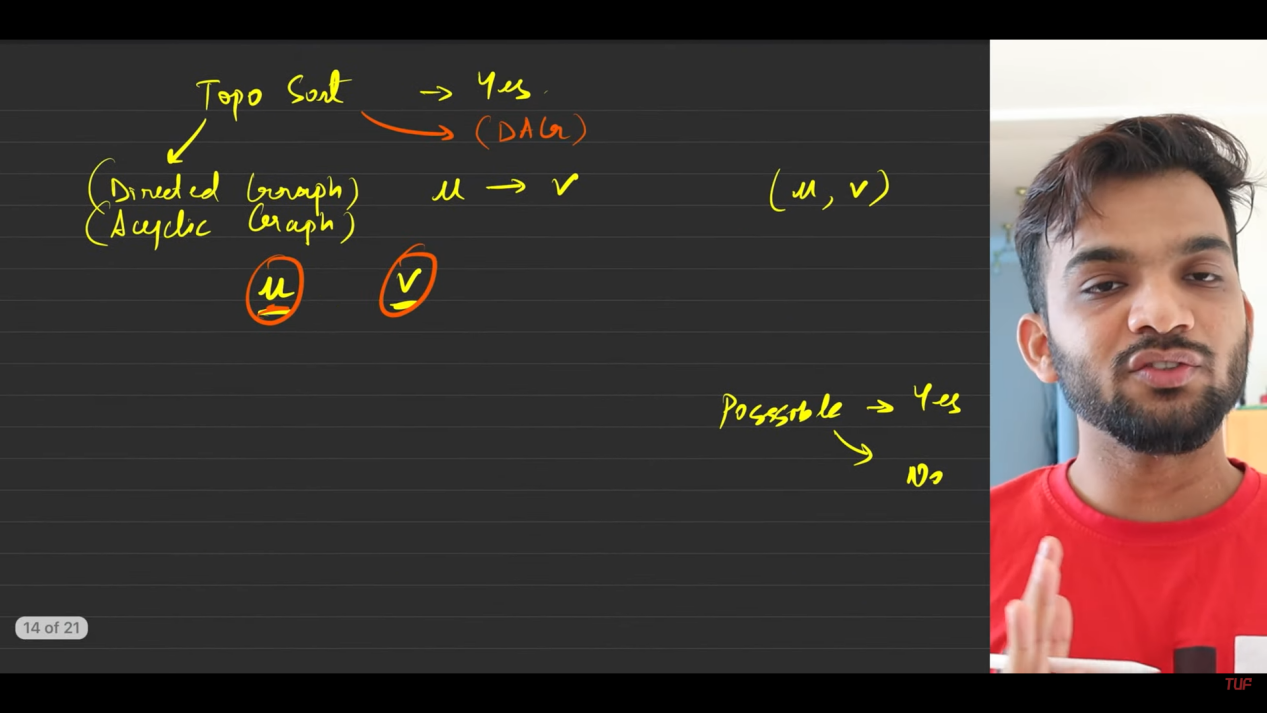 Topo Sort → Yes
(DAG)
(Directed Graph) u → v (u, v)
(Acyclic Graph)
u v
Possible → Yes
No
14 of 21
TUF